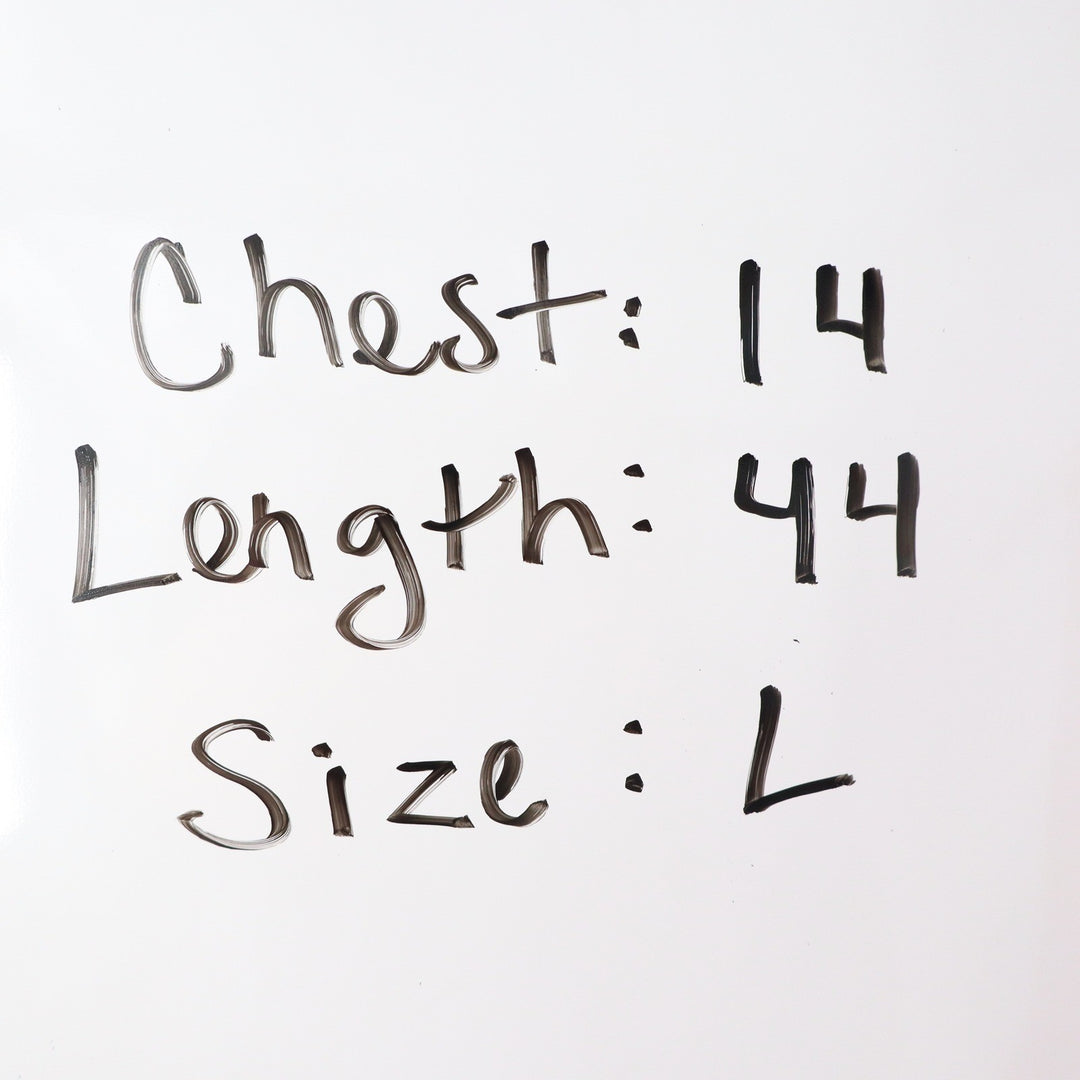 Chest: 14
Length: 44
Size: L